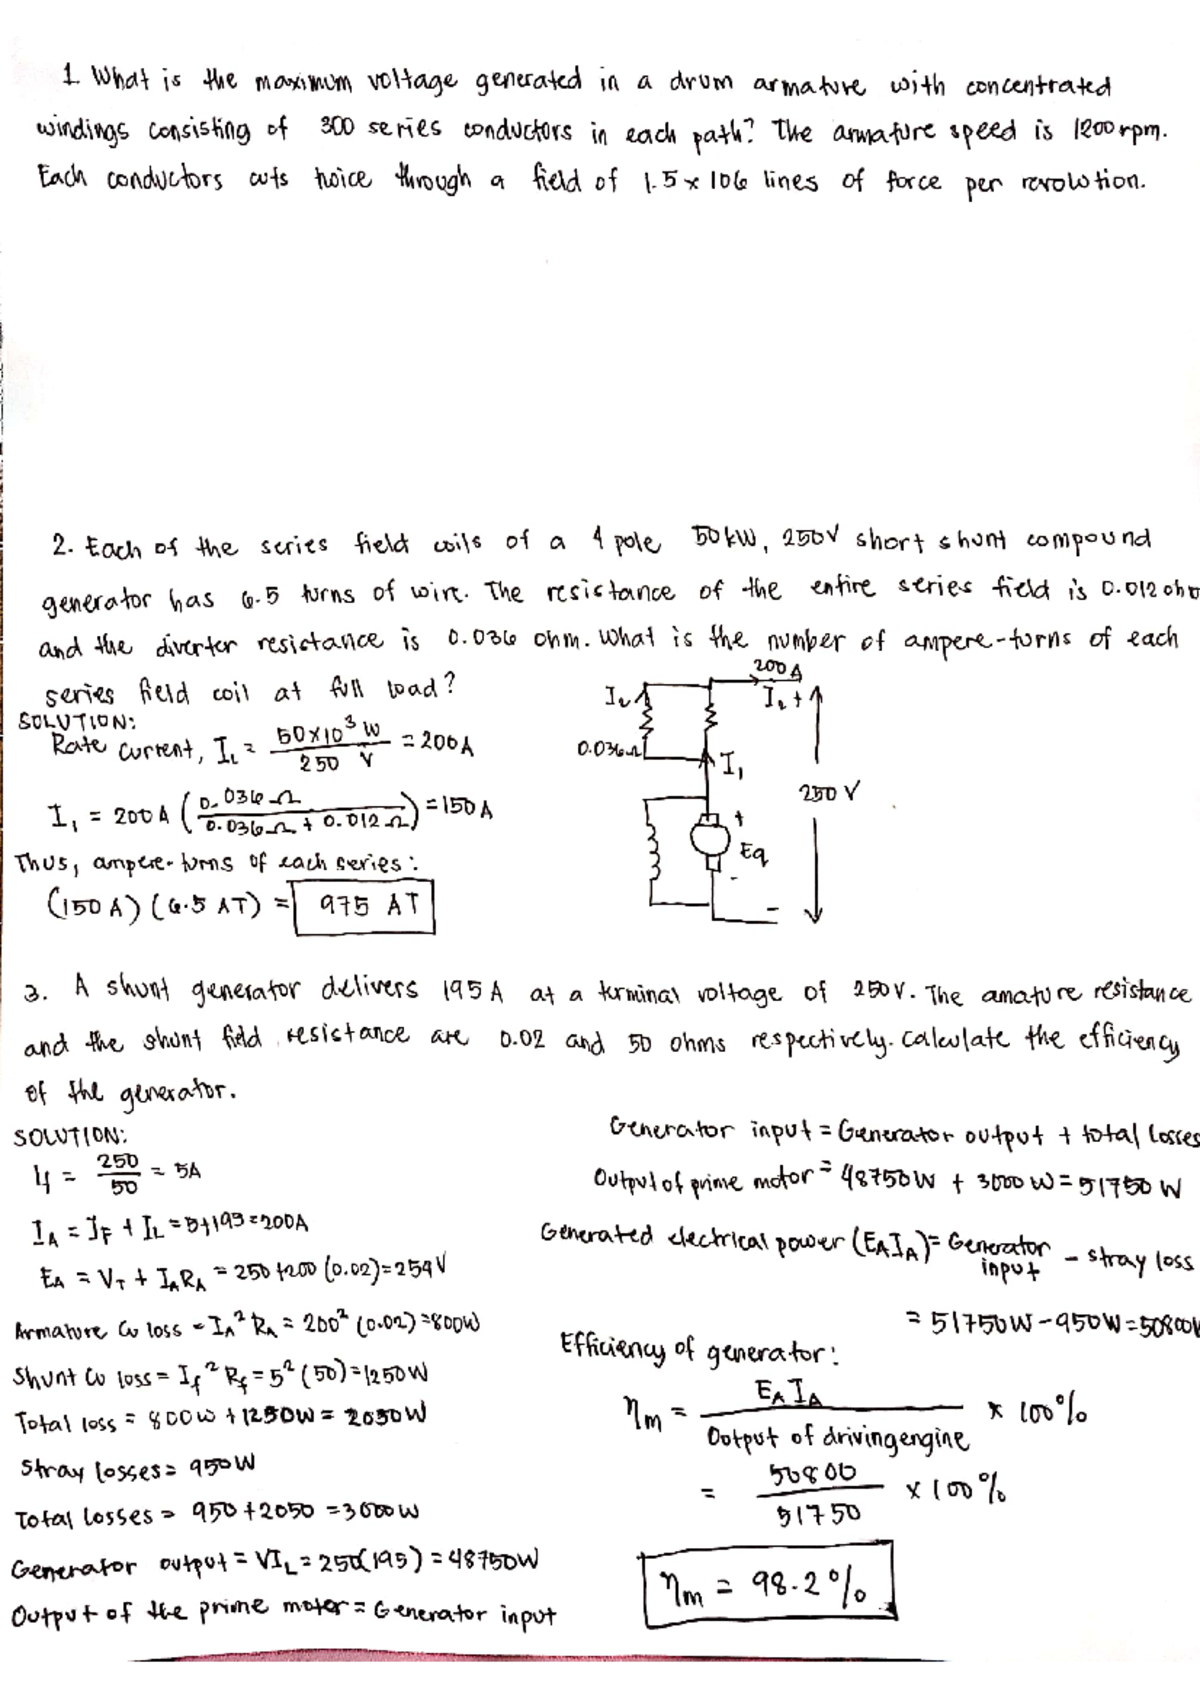 1. What is the maximum voltage generated in a drum armature with concentrated
windings consisting of 300 series conductors in each path? The armature speed is 1200 rpm.
Each conductors cuts twice through a field of 1.5 x 106 lines of force per revolution.
2. Each of the series field coils of a 4 pole 50kW, 250V short shunt compound
generator has 6.5 turns of wire. The resistance of the entire series field is 0.012 ohm
and the diverter resistance is 0.036 ohm. What is the number of ampere-turns of each
series field coil at full load?
SOLUTION:
Rate current, IL = 50x10³ W / 250 V = 200A
I₁ = 200A (0.036Ω / 0.036Ω + 0.012Ω) = 150A
Thus, ampere-turns of each series:
(150A) (6.5 AT) = 975 AT
200A
I₂ +
0.036Ω
I₁
250 V
+
Eg
-
-
3. A shunt generator delivers 195A at a terminal voltage of 250V. The amature resistance
and the shunt field resistance are 0.02 and 50 ohms respectively. Calculate the efficiency
of the generator.
SOLUTION:
If = 250 / 50 = 5A
IA = IF + IL = 5+195 = 200A
EA = VT + IARA = 250 + 200 (0.02) = 254V
Armature Cu loss = IA² RA = 200² (0.02) = 800W
Shunt Cu loss = If² Rf = 5² (50) = 1250W
Total loss = 800W + 1250W = 2050W
Stray losses = 950W
Total losses = 950 + 2050 = 3000W
Generator output = VIL = 250(195) = 48750W
Output of the prime motor = Generator input
Generator input = Generator output + total losses
Output of prime motor = 48750W + 3000W = 51750 W
Generated electrical power (EAIA) = Generator input - stray loss
= 51750W - 950W = 50800W
Efficiency of generator:
ηm = EAIA / Output of driving engine x 100%
= 50800 / 51750 x 100%
ηm = 98.2%